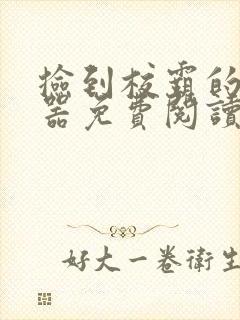 撿到校霸的
器免費閱讀
好大一卷衛生